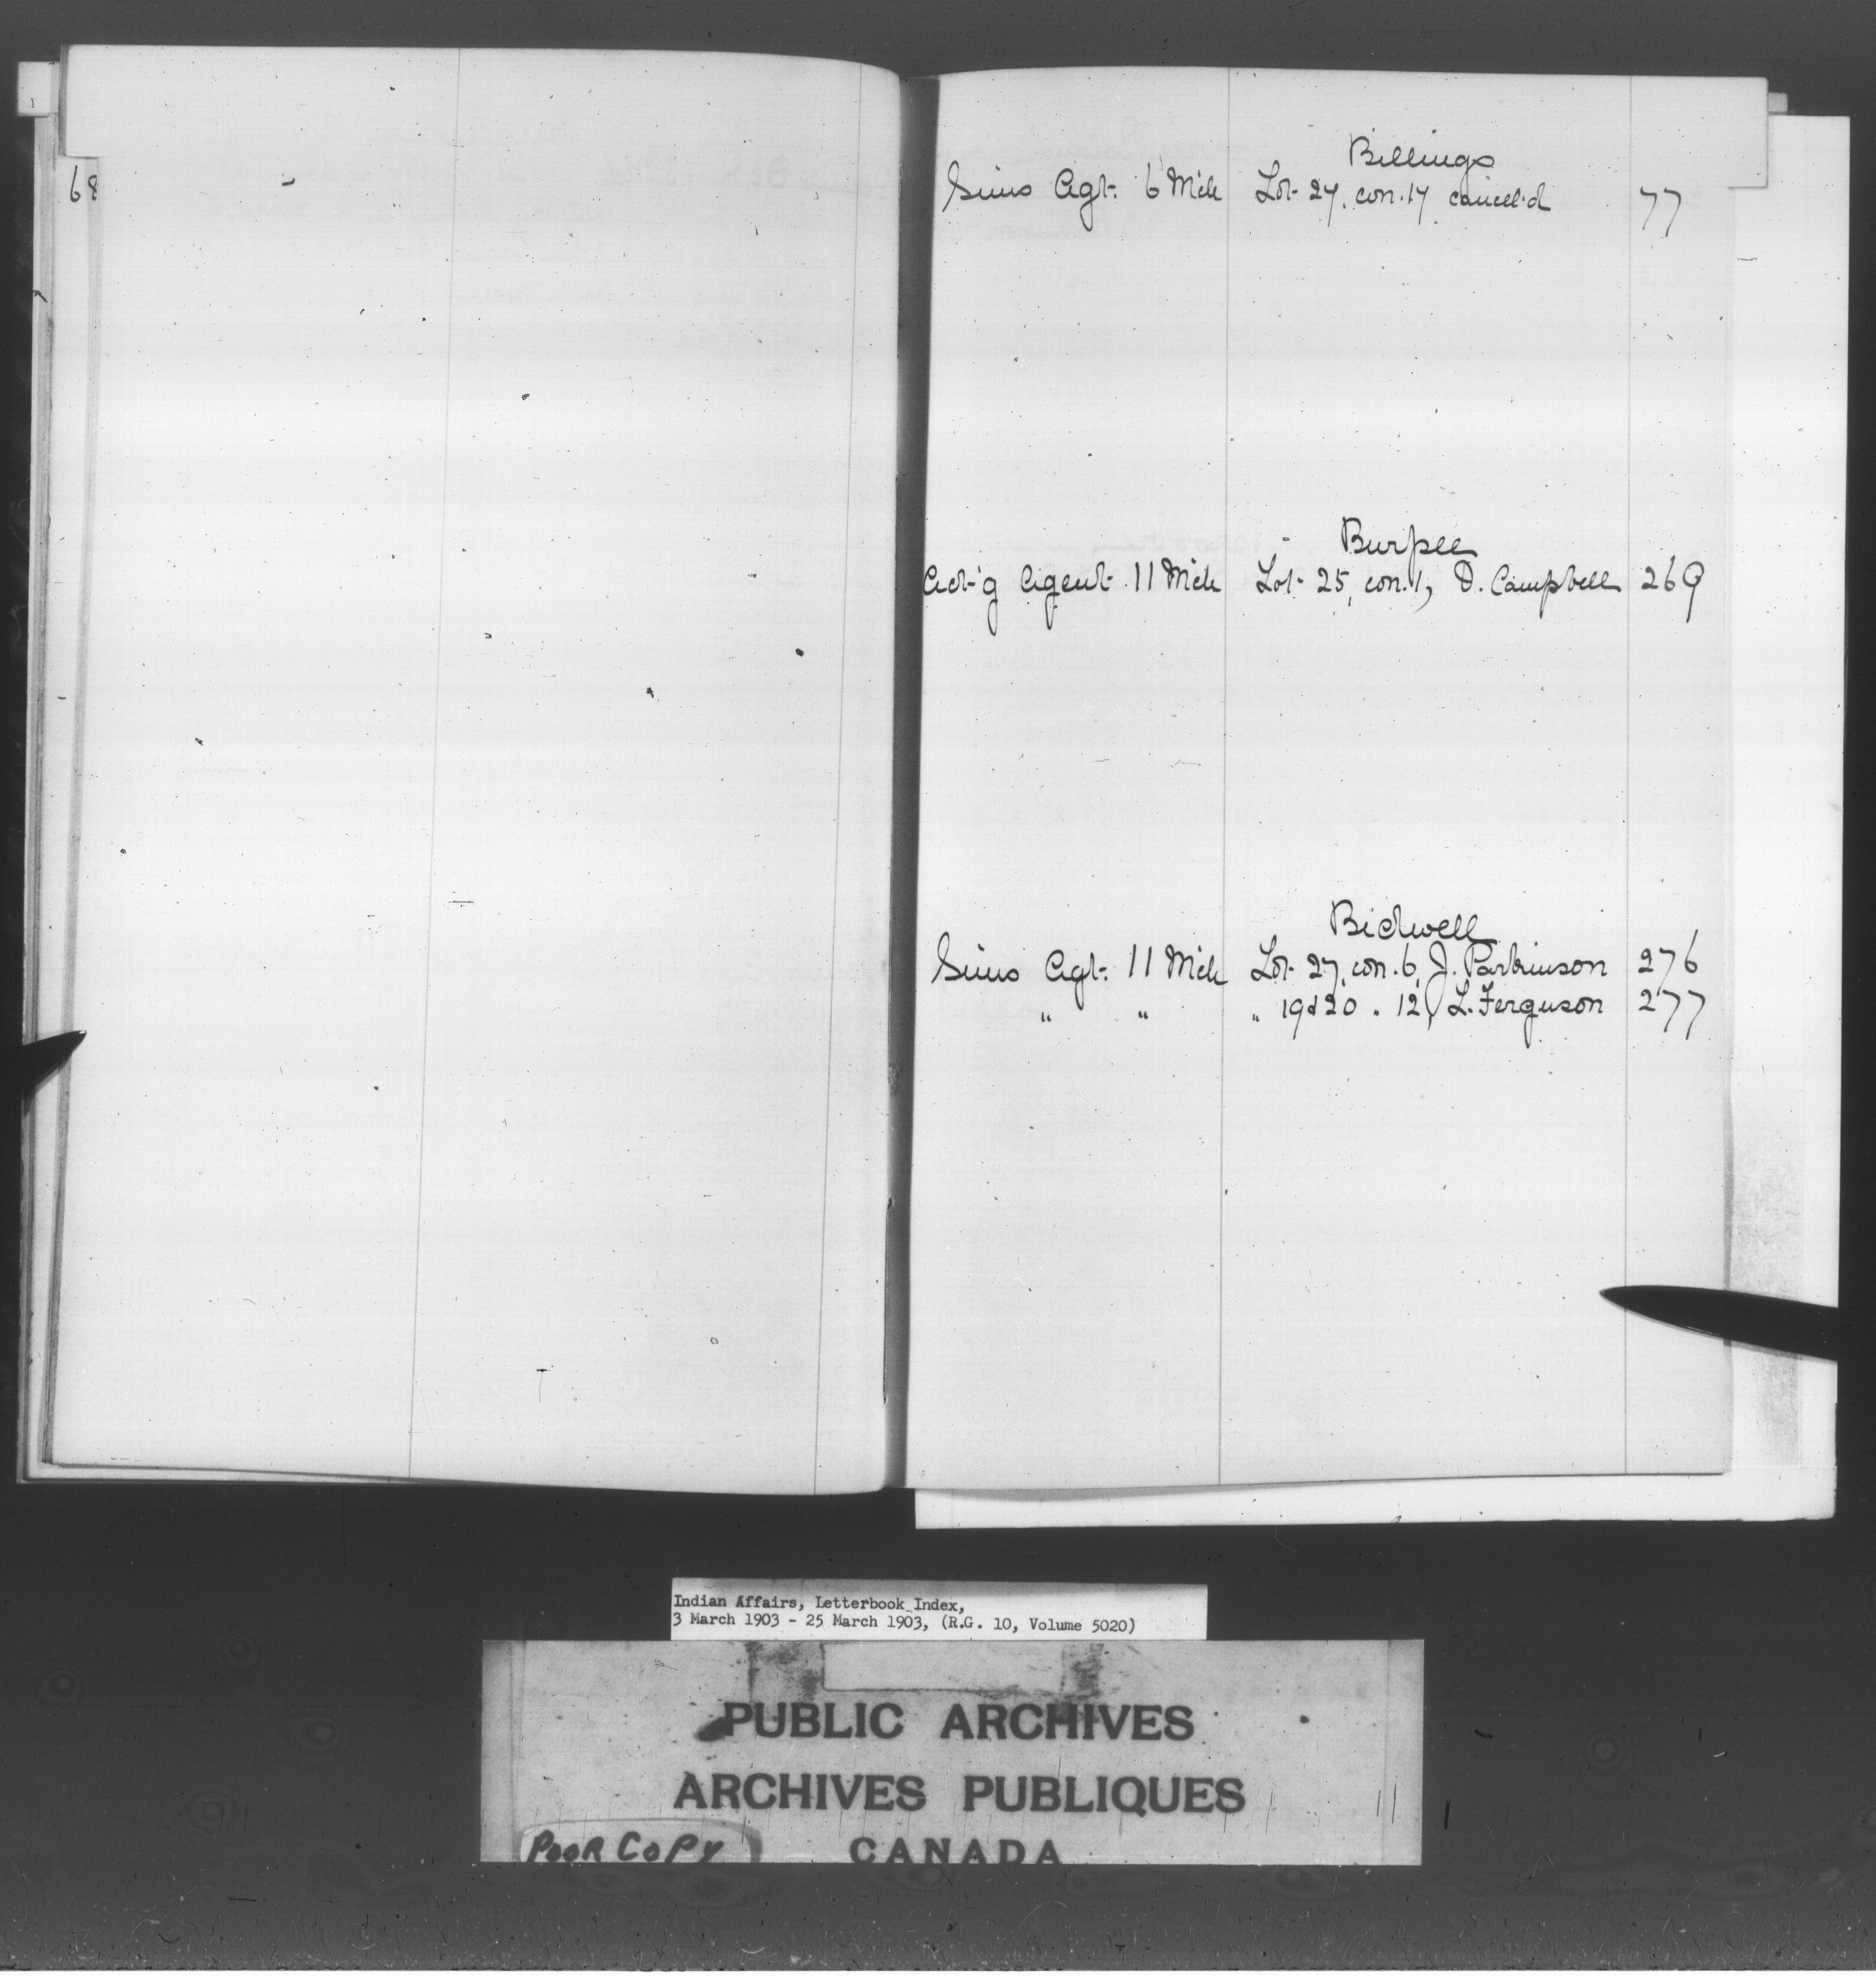 68
Billings
Sims Agt. 6 Mch Lot 27, con. 17 cancel'd 77
Burpee
Act'g Agent 11 Mch Lot 25, con. 1, D. Campbell 269
Bidwell
Sims Agt. 11 Mch Lot 27, con. 6, J. Parkinson 276
" " " 19 & 20 " 12, L. Ferguson 277
Indian Affairs, Letterbook Index,
3 March 1903 - 25 March 1903, (R.G. 10, Volume 5020)
PUBLIC ARCHIVES
ARCHIVES PUBLIQUES
POOR COPY CANADA